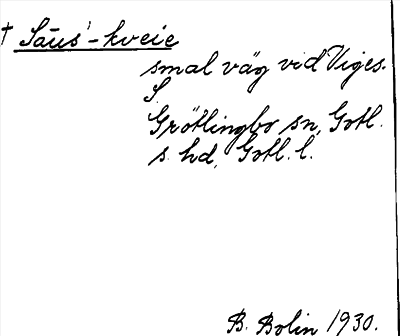 † Säus'-kveie
smal väg vid Viges.
S.
Grötlingbo sn, Gotl.
s. hd, Gotl. l.
B. Bolin 1930.